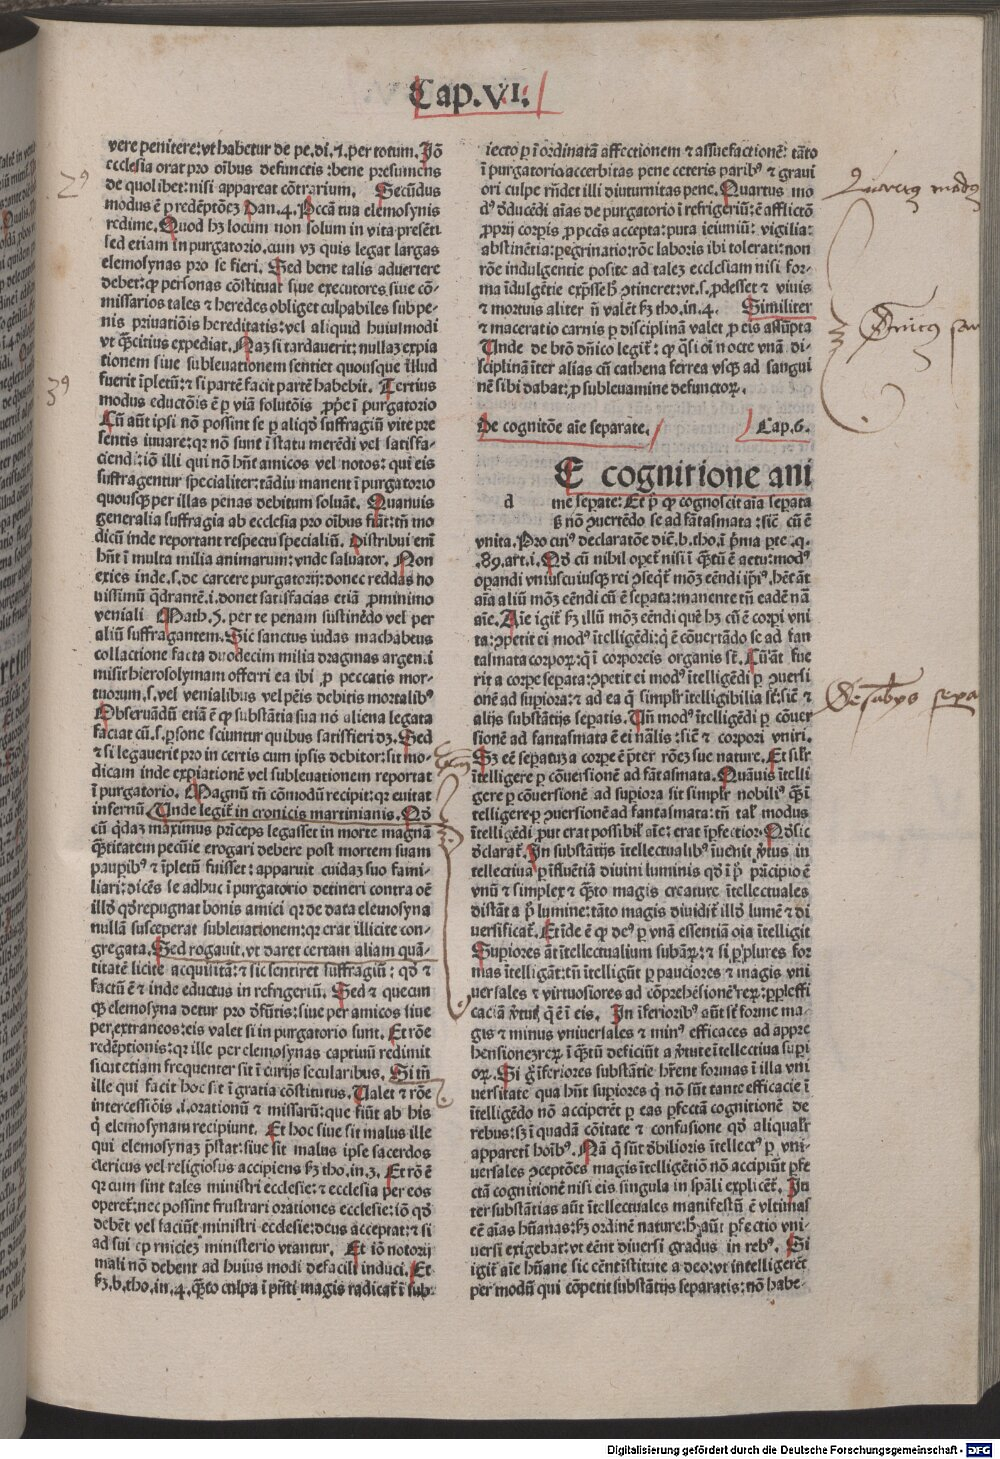 Cap.VI.
vere penitere: vt habetur de pe. di. 1. per totum. Iõ
ecclesia orat pro oĩbus defunctis: bene presumens
de quolibet: nisi appareat cõtrarium. Secũdus
modus ē ꝑ redēptõeʒ Dan. 4. Pctã tua elemosynis
redime. Quod hʒ locum non solum in vita presēti
sed etiam in purgatorio. cum vʒ quis legat largas
elemosynas pro se fieri. Sed bene talis aduertere
debet: ꝙ personas cõstituat siue executores siue cõ-
missarios tales ⁊ heredes obliget culpabiles sub pe-
nis priuatiõis hereditatis: vel aliquid huiusmodi
vt q̃citius expediat. Naʒ si tardauerit: nullaʒ expia
tionem siue subleuationem sentiet quousque illud
fuerit ĩpletũ: ⁊ si partē facit partē habebit. Tertius
modus eductõis ē ꝑ viã solutõis ꝓpē ĩ purgatorio
Cũ aũt ipsi nõ possint se ꝑ aliqđ suffragiũ vite pre
sentis iuuare: qr nõ sunt ĩ statu merēdi vel satisfa-
ciendi: iõ illi qui nõ hñt amicos vel notos: qui eis
suffragentur specialiter: tãdiu manent ĩ purgatorio
quousqʒ per illas penas debitum soluãt. Quanuis
generalia suffragia ab ecclesia pro oĩbus fiãt: tñ mo
dicũ inde reportant respectu specialiũ. Distribui enĩ
hñt ĩ multa milia animarum: vnde saluator. Non
exies inde. s. de carcere purgatorij: donec reddas no
uissimũ q̃drantē. i. donet satisfacias etiã ꝓ minimo
veniali Math. 5. per te penam sustinēdo vel per
aliũ suffragantem. Sic sanctus iudas machabeus
collactione facta duodecim milia dragmas argenti
misit hierosolymam offerri ea ibi ꝓ peccatis mor-
tuorum. s. vel venialibus vel pēis debitis mortalibꝰ
Obseruãdũ etiã ē ꝙ substãtia sua nõ aliena legata
faciat cũ. s. ꝑsone sciuntur quibus satisfieri dʒ. Sed
⁊ si legauerit pro in certis cum ipsis debitor: sit mo-
dicam inde expiationē vel subleuationem reportat
ĩ purgatorio. Magnũ tñ cõmodũ recipit: qr euitat
infernũ. Unde legit̃ in cronicis martinianis. Qđ
cũ q̃daʒ maximus prĩceps legasset in morte magnã
q̃titatem pecunie erogari debere post mortem suam
pauꝑibꝰ ⁊ ĩpletũ fuisset: apparuit cuidaʒ suo fami-
liari: dicēs se adhuc ĩ purgatorio detineri contra oē
illđ qđ repugnat bonis amici qr de data elemosyna
nullã susceperat subleuationem: qr erat illicite con-
gregata. Sed rogauit. vt daret certam aliam quã-
titatē licite acquisitã: ⁊ sic sentiret suffragiũ: qđ ⁊
factũ ē ⁊ inde eductus in refrigeriũ. Sed ⁊ quecun
qʒ elemosyna detur pro đfũtis: siue per amicos siue
per extraneos: eis valet si in purgatorio sunt. Et rõe
redēptionis: qr ille per elemosynas captiuũ redimit
sicut etiam frequenter sit ĩ curijs secularibus. Si tñ
ille qui facit hoc sit ĩ gratia cõstitutus. Ualet ⁊ rõe
intercessiõis. i. orationũ ⁊ missarũ: que fiũt ab his
q̇ elemosynam recipiunt. Et hoc siue sit malus ille
qui elemosynaʒ p̃stat: siue sit malus ipse sacerdos
clericus vel religiosus accipiens ẜm tho. in. 3. Et rõ ē
qr cum sint tales ministri ecclesie: ⁊ ecclesia per eos
operet̃: nec possint frustrari orationes ecclesie: iõ qđ
debēt vel faciũt ministri ecclesie: deus acceptat: ⁊ si
ad sui ꝑnicieʒ ministerio vtantur. Et iõ notorij
mali nõ debent ad huius modi defacili induci. Et
ẜm. b. tho. in. 4. q̃to culpa ĩ pñti magis radicat̃ ĩ sub-
iecto ꝑ ĩordinatã affectionem ⁊ assuefactionē: tãto
ĩ purgatorio accerbitas pene ceteris paribꝰ ⁊ graui
ori culpe rñdet illi diuturnitas pene. Quartus mo
dꝰ đducēdi aĩas de purgatorio ĩ refrigeriũ: ē afflictõ
ꝓprij corpis ꝓ pctĩs accepta: puta ieiuniũ: vigilia:
abstinētia: peregrinatio: rõe laboris ibi tolerati: non
rõe indulgentie posite ad taleʒ ecclesiam nisi for-
ma ĩdulgētie exp̃sse hͦ ↄtineret: vt. s. ꝓdesset ⁊ viuis
⁊ mortuis aliter ñ valēt ẜm tho. in. 4. Similiter
⁊ maceratio carnis ꝑ disciplinã valet ꝓ eis assũpta
Unde de btõ dñico legit̃: ꝙ q̃si oĩ nocte vnã di-
sciplinã ĩter alias cũ cathena ferrea vsqʒ ad sangui
nē sibi dabat: ꝓ subleuamine defunctoꝝ.
De cognitõe aĩe separate. Cap. 6.
E cognitione ani
d me sepate. Et p̃ ꝙ cognoscit aĩa sepata
ß nõ ↄuertēdo se ad fãtasmata: sicũ cũ ē
vnita. Pro cuiꝰ declaratõe dicē. b. tho. ĩ p̃ma ꝑte. q.
. 89. art. i. Qđ cũ nihil opet̃ nisi ĩ q̃tũ ē actu: modꝰ
oꝑandi vniuscuiusqʒ rei ↄseqt̃ modʒ eēndi ip̃iꝰ. hēt aũt
aĩa aliũ modʒ eēndi cũ ē sepata: manente tñ eadē nã
aĩe. Aĩe igit̃ ẜm illũ modʒ eēndi quē hʒ cũ ē corpi vni
ta: ↄpetit ei modꝰ ĩtelligēdi: q̇ ē cõuertēdo se ad fan
tasmata corpoꝝ: q̃ ĩ corporeis organis st̃. Cũ aũt fue
rit a corpe sepata: ↄpetit ei modꝰ ĩtelligēdi ꝑ ↄuersi
onē ad supiora: ⁊ ad ea q̃ simplr̃ ĩtelligibilia st̃: sicũ ⁊
alijs substãtijs sepatis. Un̄ modꝰ ĩtelligēdi ꝑ cõuer
sionē ad fantasmata ē ei nãlis: sicũ ⁊ corpori vniri.
Sʒ eē sepatuʒ a corpe ē p̃ter rõeʒ sue nature. Et silr̃
ĩtelligere ꝑ cõuersionē ad fãtasmata. Quãuis ĩtelli
gere ꝑ cõuersionē ad supiora sit simplr̃ nobiliꝰ q̃ ĩ
telligere ꝑ ↄuersionē ad fantasmata: tñ tal̃ modus
ĩtelligēdi ꝓut erat possibil̃ aĩe: erat ĩpfectior. Qđ sic
đclarat̃. In substãtijs ĩtellectualibꝰ ĩuenit̃ ṽtus in
tellectiua ꝑ ĩfluētiã diuini luminis qđ ĩ p̃ prĩcipio ē
vnũ ⁊ simplex ⁊ q̃to magis creature ĩtellectuales
distãt a p̃ lumine: tãto magis diuidit̃ illđ lumē ⁊ di
uersificat̃. Et ĩde ē ꝙ deꝰ ꝑ vnã essentiã oĩa ĩtelligit
Supiores aũt ĩtellectualium subãꝝ: ⁊ si ꝑ plures for
mas ĩtelligãt: tñ ĩtelligũt ꝑ pauciores ⁊ magis vni
uersales ⁊ virtuosiores ad cõprehēsionē reꝝ: ꝓꝑ effi
caciã ṽtutꝰ q̃ ē ĩ eis. In ĩferioribꝰ aũt st̃ forme ma-
gis ⁊ minus vniuersales ⁊ minꝰ efficaces ad appre
hensioneʒ reꝝ ĩ q̃tũ deficiũt a ṽtute ĩtellectiua supi
oꝝ. Si g̊ ĩferiores substãtie hr̃ent formas ĩ illa vni
uersitate qua hñt supiores q̇ nõ sũt tante efficacie ĩ
ĩtelligēdo nõ acciperēt ꝑ eas ꝑfectã cognitionē de
rebus: sʒ ĩ quadã cõitate ⁊ confusione qđ aliqualr̃
apparet ĩ hoĩbꝰ. Nã q̇ sũt đbilioris ĩtellectꝰ ꝑ vni-
uersales ↄceptões magis ĩtelligētiõ nõ accipiũt ꝑfe
ctã cognitionē nisi eis singula in spãli explicēt̃. In
ter substãtias aũt ĩtellectuales manifestũ ē vltimas
eē aĩas hũanas: ẜm ordinē nature: hͦ aũt ꝑfectio vni-
uersi exigebat: vt eēnt diuersi gradus in rebꝰ. Si
igit̃ aĩe hũane sic cēnt ĩstitute a deo: vt intelligerēt
per modũ qui cõpetit substãtijs separatis: nõ habe-
2ꝰ
3ꝰ
Digitalisierung gefördert durch die Deutsche Forschungsgemeinschaft - DFG